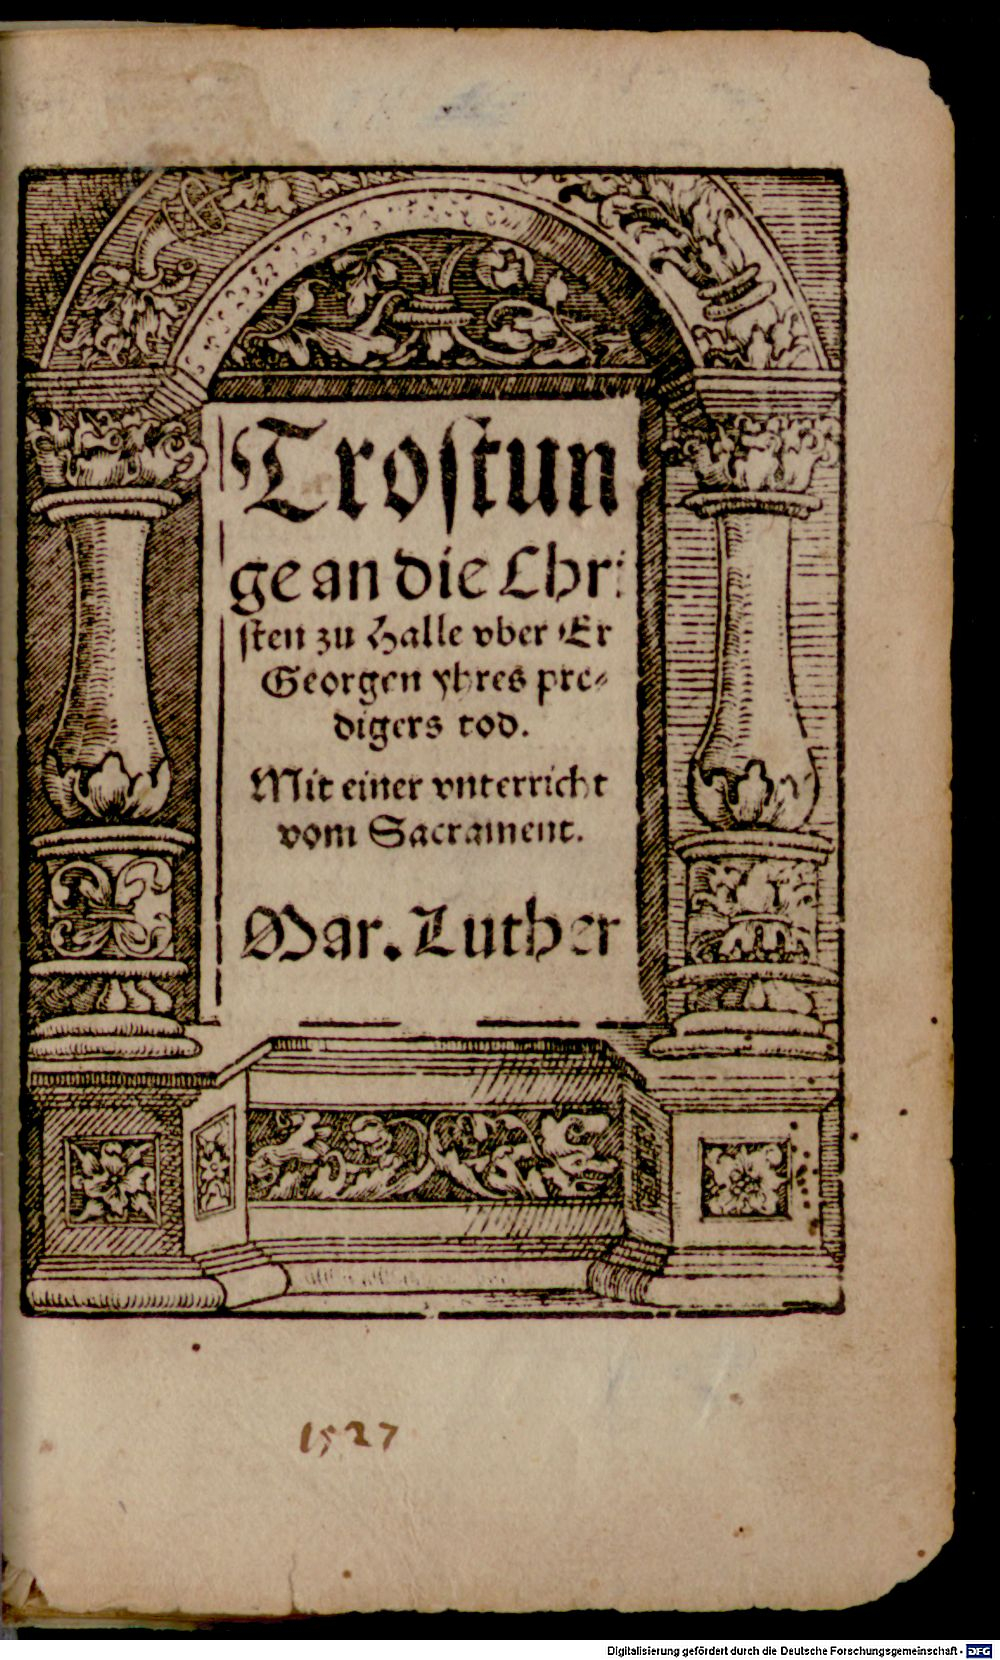 Trostun
ge an die Chri
sten zu Halle vber Er
Georgen yhres pre⸗
digers tod.
Mit einer vnterricht
vom Sacrament.
Mar. Luther
1527
Digitalisierung gefördert durch die Deutsche Forschungsgemeinschaft - DFG